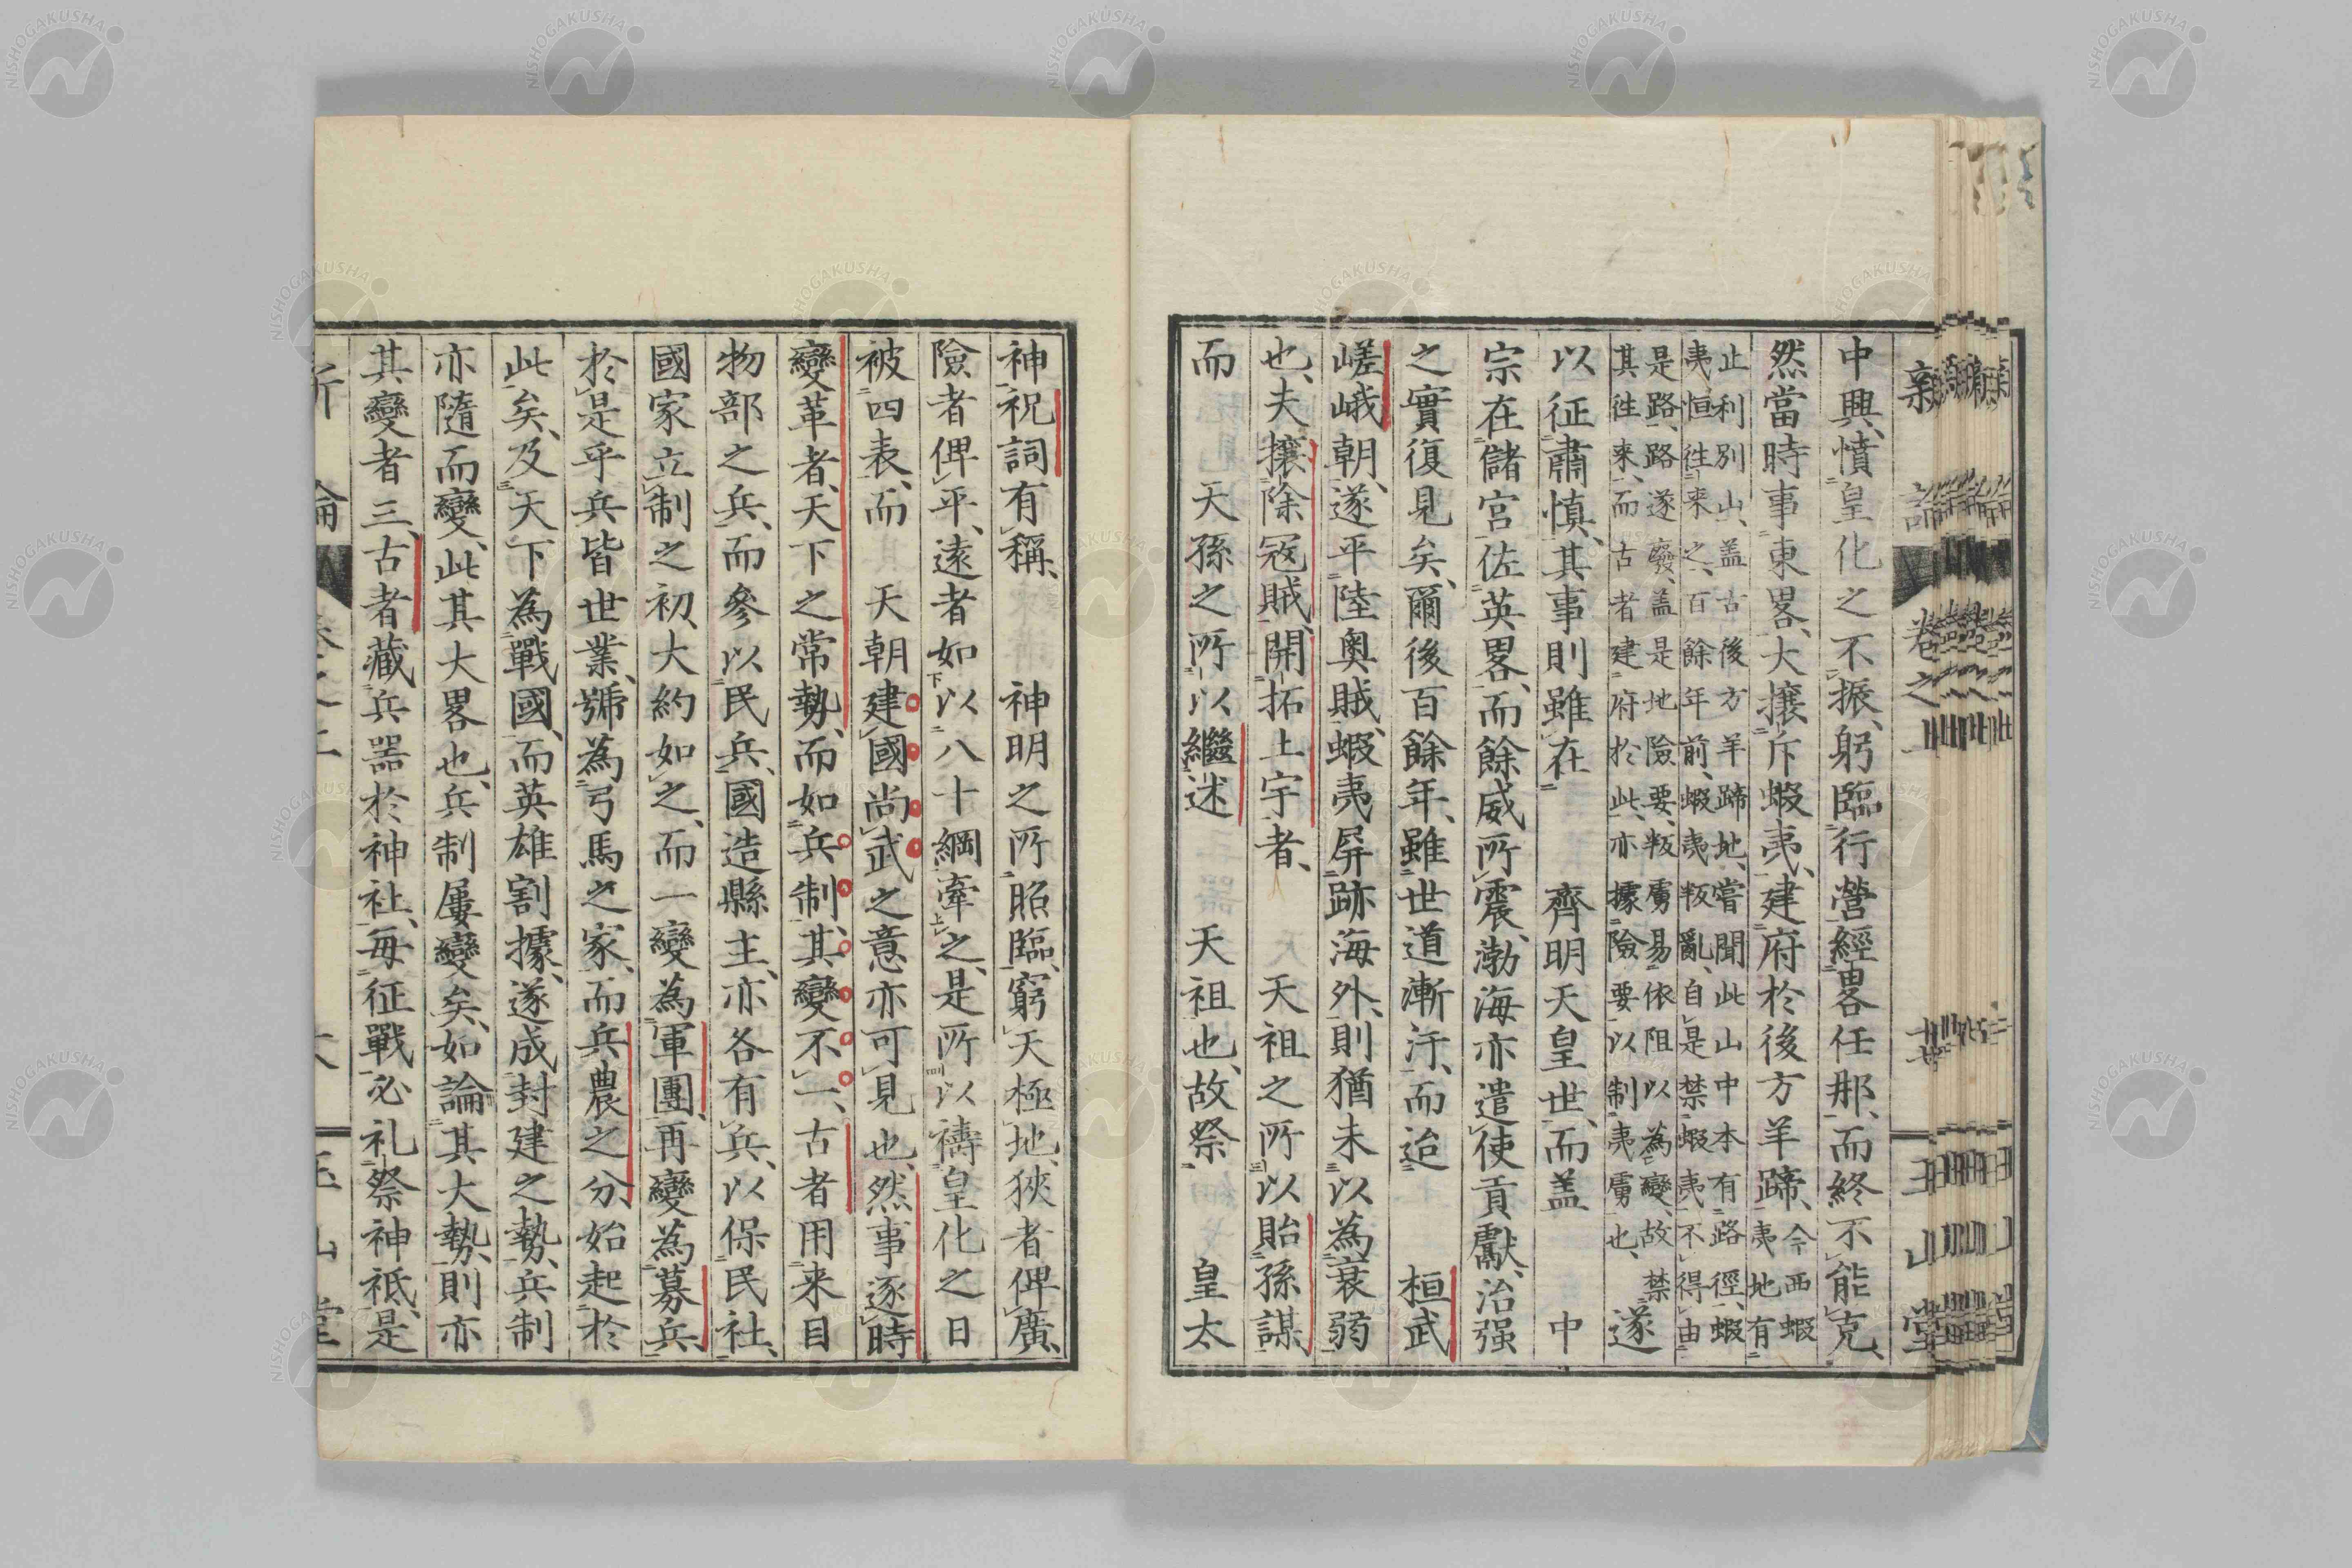 中興、憤皇化之不振、躬臨行營經畧任那、而終不能克、
然當時事東畧、大攘斥蝦夷、建府於後方羊蹄、今西蝦夷地有
止利別山、盖古後方羊蹄地、嘗聞此山中本有路徑、蝦
夷恒往来之、百餘年前、蝦夷叛亂、自是禁蝦夷不得由
是路、路遂廢、盖是地險要、叛虜易依阻以為變、故禁
其往来、而古者建府於此、亦據險要以制夷虜也、遂
以征肅慎、其事則雖在 齊明天皇世、而盖 中
宗在儲宮佐英畧、而餘威所震、渤海亦遣使貢獻、治强
之實復見矣、爾後百餘年、雖世道漸汙、而迨 桓武
嵯峨朝、遂平陸奥賊、蝦夷屏跡海外、則猶未以為衰弱
也、夫攘除冦賊、開拓土宇者、 天祖之所以貽孫謀、
而 天孫之所以繼述 天祖也、故祭 皇太
神祝詞有稱、 神明之所照臨、窮天極地、狹者俾廣、
險者俾平、遠者如以八十綱牽之、是所以禱皇化之日
被四表、而 天朝建國尚武之意亦可見也、然事逐時
變革者、天下之常勢、而如兵制、其變不一、古者用来目
物部之兵、而參以民兵、國造縣主、亦各有兵、以保民社、
國家立制之初、大約如之、而一變為軍團、再變為募兵、
於是乎兵皆世業、號為弓馬之家、而兵農之分始起於
此矣、及天下為戰國、而英雄割據、遂成封建之勢、兵制
亦隨而變、此其大畧也、兵制屢變矣、如論其大勢、則亦
其變者三、古者藏兵噐於神社、毎征戰必礼祭神祇、是
新論 卷之上 玉山堂